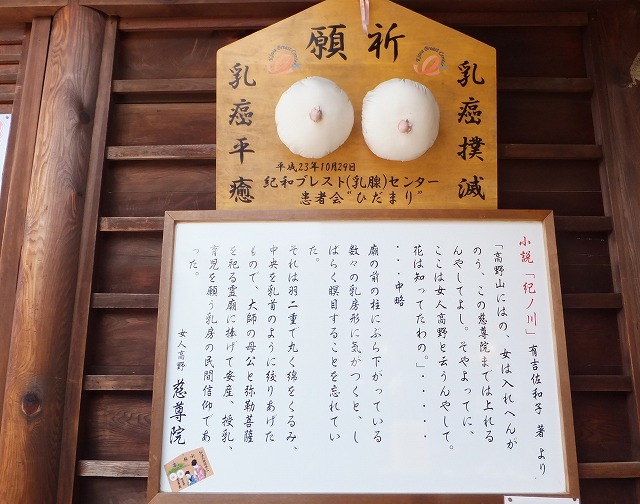 祈願
乳癌撲滅
乳癌平癒
平成23年10月29日
紀和ブレスト(乳腺)センター
患者会“ひだまり”
小説「紀ノ川」有吉佐和子 著 より
「高野山にはの、女は入れへんが
のう、この慈尊院までは上れる
んやしてよし。そやよってに、
ここは女人高野と云うんやして。
花は知ってたわの。」・・・・・
・・・中略
廟の前の柱にぶら下がっている
数々の乳房形に気がつくと、し
ばらく瞑目することを忘れてい
た。
それは羽二重で丸く綿をくるみ、
中央を乳首のように絞りあげた
もので、大師の母公と弥勒菩薩
を祀る霊廟に捧げて安産、授乳、
育児を願う乳房の民間信仰であ
った。
女人高野 慈尊院